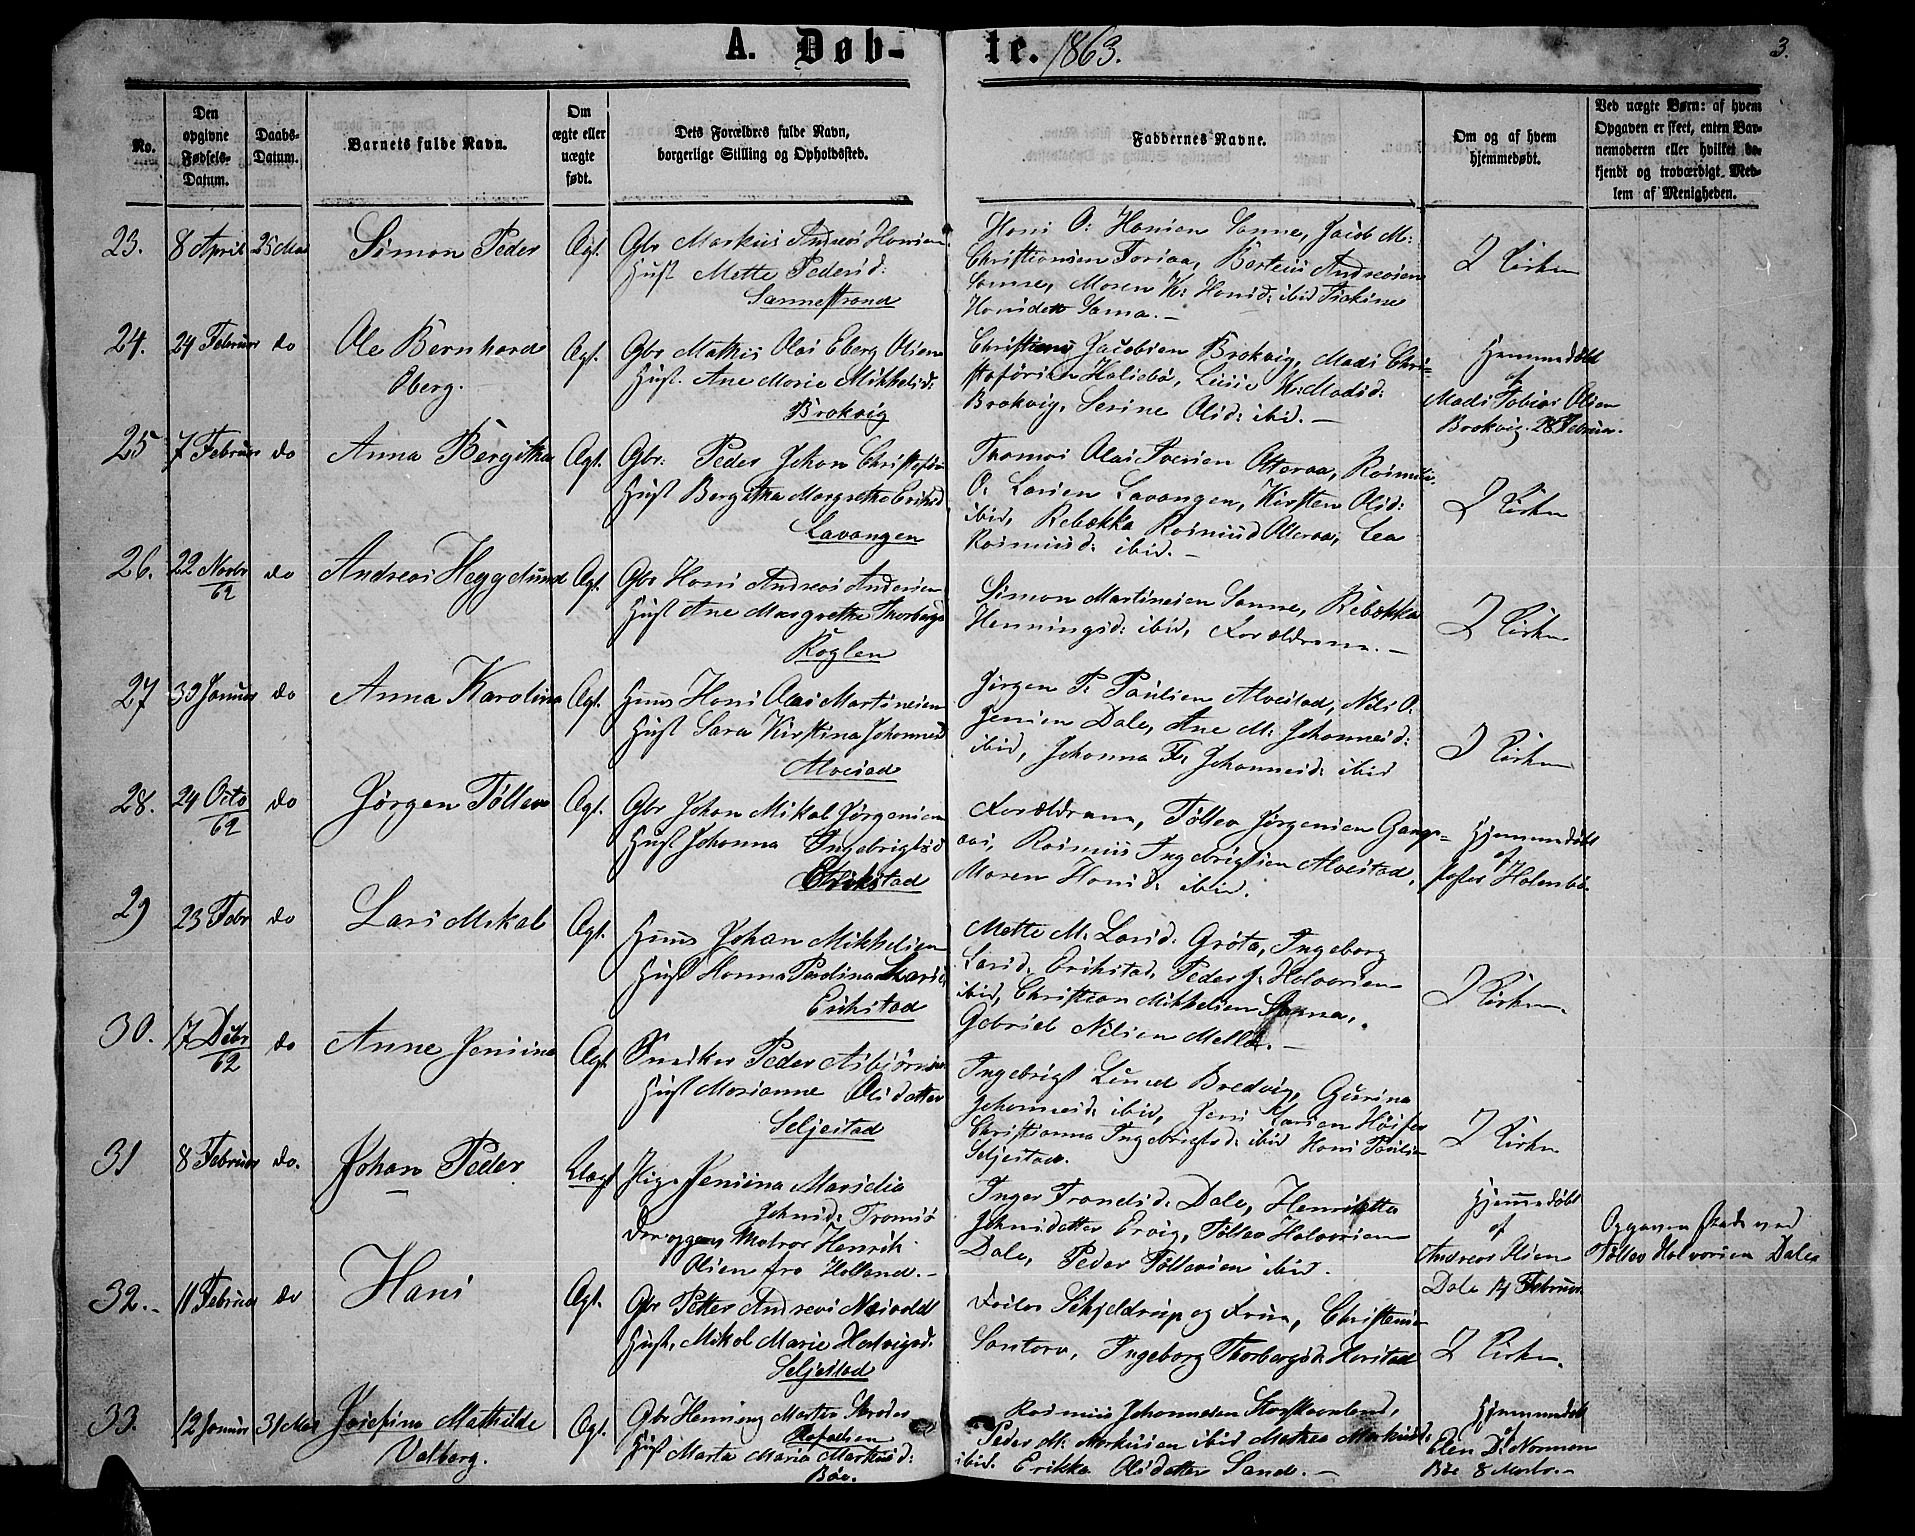 A. Døb- te. 1863.
3.
No.
Den opgivne Fødsels-Datum.
Daabs-Datum.
Barnets fulde Navn.
Om ægte eller uægte født.
Dets Forældres fulde Navn, borgerlige Stilling og Opholdssted.
Faddernes Navne.
Om og af hvem hjemmedøbt.
Ved uægte Børn: af hvem Opgaven er skeet, enten Barnemoderen eller hvilket bekjendt og troværdigt Medlem af Menigheden.
23. 8 April 25 Mai Simon Peder Ægt.
Gbr Markus Andreas Hansen
Hust Mette Pedersd:
Sannestrand
Hans O: Hansen Sanne, Jacob M:
Christiansen Foraa, Berteus Andreasen
Sanne, Maren K: Hansd: ibid
Hansdatt Sama.-
I Kirken
24. 24 Februar do Ole Bernhard
Oberg.
Ægt.
Gbr Mathis Olai Eberg Olsen
Hust. Ane Marie Mikkelsd:
Brokvig
Christians Jacobsen Brokvig, Mads Chri-
stofersen Halsebø, K: Madsd:
Brokvig, Serine Olsd: ibid.-
Hjemmedøbt
af
Mads Tobias Olsen
Brokvig. 28 Februar.
25 7 Februar do Anna Bergitha Ægt.
Gbr: Peder Johan Christofers
Hust Bergitha Margretha Eriksd
Lavangen
Thomas Olai Olteraa, Rasmus
O: Larsen Lavangen, Kirsten Olsd:
ibid, Rebekka Rasmusd Olteraa, Lea
Rasmusd: ibid.-
I Kirken
26. 22 Novbr
62
do Andreas Heggelund Ægt.
Gbr Hans Andreas Andersen
Hust Ane Margrethe Thorbergs
Røglen
Simon Martinesen Sanne, Rebekka
Henningsd: ibid, Forældrene.-
I Kirken
27 30 Januar do Anna Karolina Ægt.
Huus Hans Olai Martinesen
Hust Sara Kirstina Johannesd
Alvestad
Jørgen P: Paulsen Alvestad, Nils O:
Jensen Dale, Ane M: Johannesd:
ibid, Johanna F: Johannesd: ibid
I Kirken
28. 24 Octo
62
do Jørgen Tøllev Ægt.
Gbr Johan Mikal Jørgensen
Hust Johanna Ingebrigtsd
Erikstad
Forældrene, Tøllev Jørgensen Gangs-
aas, Rasmus Ingebrigtsen Alvestad,
Maren Hansd: ibid.
Hjemmedøbt
af
Peter Holmbø.
29 23 Febr do Lars Mikal Ægt.
Huus Johan Mikkelsen
Hust Hanna Paulina Larsd
Erikstad
Mette M: Larsd: Grøta, Ingeborg
Larsd: Erikstad, Peder J: Halvorsen
ibid, Christian Mikkelsen Sanna,
Gabriel Nilsen Melle.-
I Kirken
30. 17 Debr
62
do Anne Jensina Ægt.
Snedker Peder Asbjørnsen
Hust Marianne Olsdatter
Seljestad
Ingebrigt Lund Bredvig, Gurina
Johannesd: ibid, Jens Larsen
Christianna Ingebrigtsd: ibid Hans Paulsen
Seljestad.
I Kirken
31 8 Februar do. Johan Peder Uægt
Pige Jensina Marsilia
Johnsd: Tromsø
Matros Henrik
Olsen fra Holland.-
Inger Trondsd: Dale, Henrikette
Johnsdatter Ervig, Tøllev Halvorsen
Dale, Peder Tøllevsen ibid.
Hjemmedøbt
af
Andreas
Dale 14 Februar
Opgaven skede ved
Tøllev Halvorsen Dale
32.- 11 Februar do Hans Ægt.
Gbr Petter Andreas Normann
Hust. Mikal Marie Hartvigsd:
Seljestad
Schjeldrup og Frue, Christense
Santora, Ingeborg Thorbergsd: Harstad
I Kirken.
33. 12 Januar 31 Mai Josefina Mathilde
Valberg.
Ægt.
Gbr Henning Martin
Rafaelsen
Hust Marta Maria Markusd:
Bøe.
Rasmus Johannesen
Peder M: Markusen ibid Mathea Markusd:
ibid. Erikka Olsdatter Sand.-
Hjemmedøbt
af
Elen D: Norman
Bøe 8 Marts.-